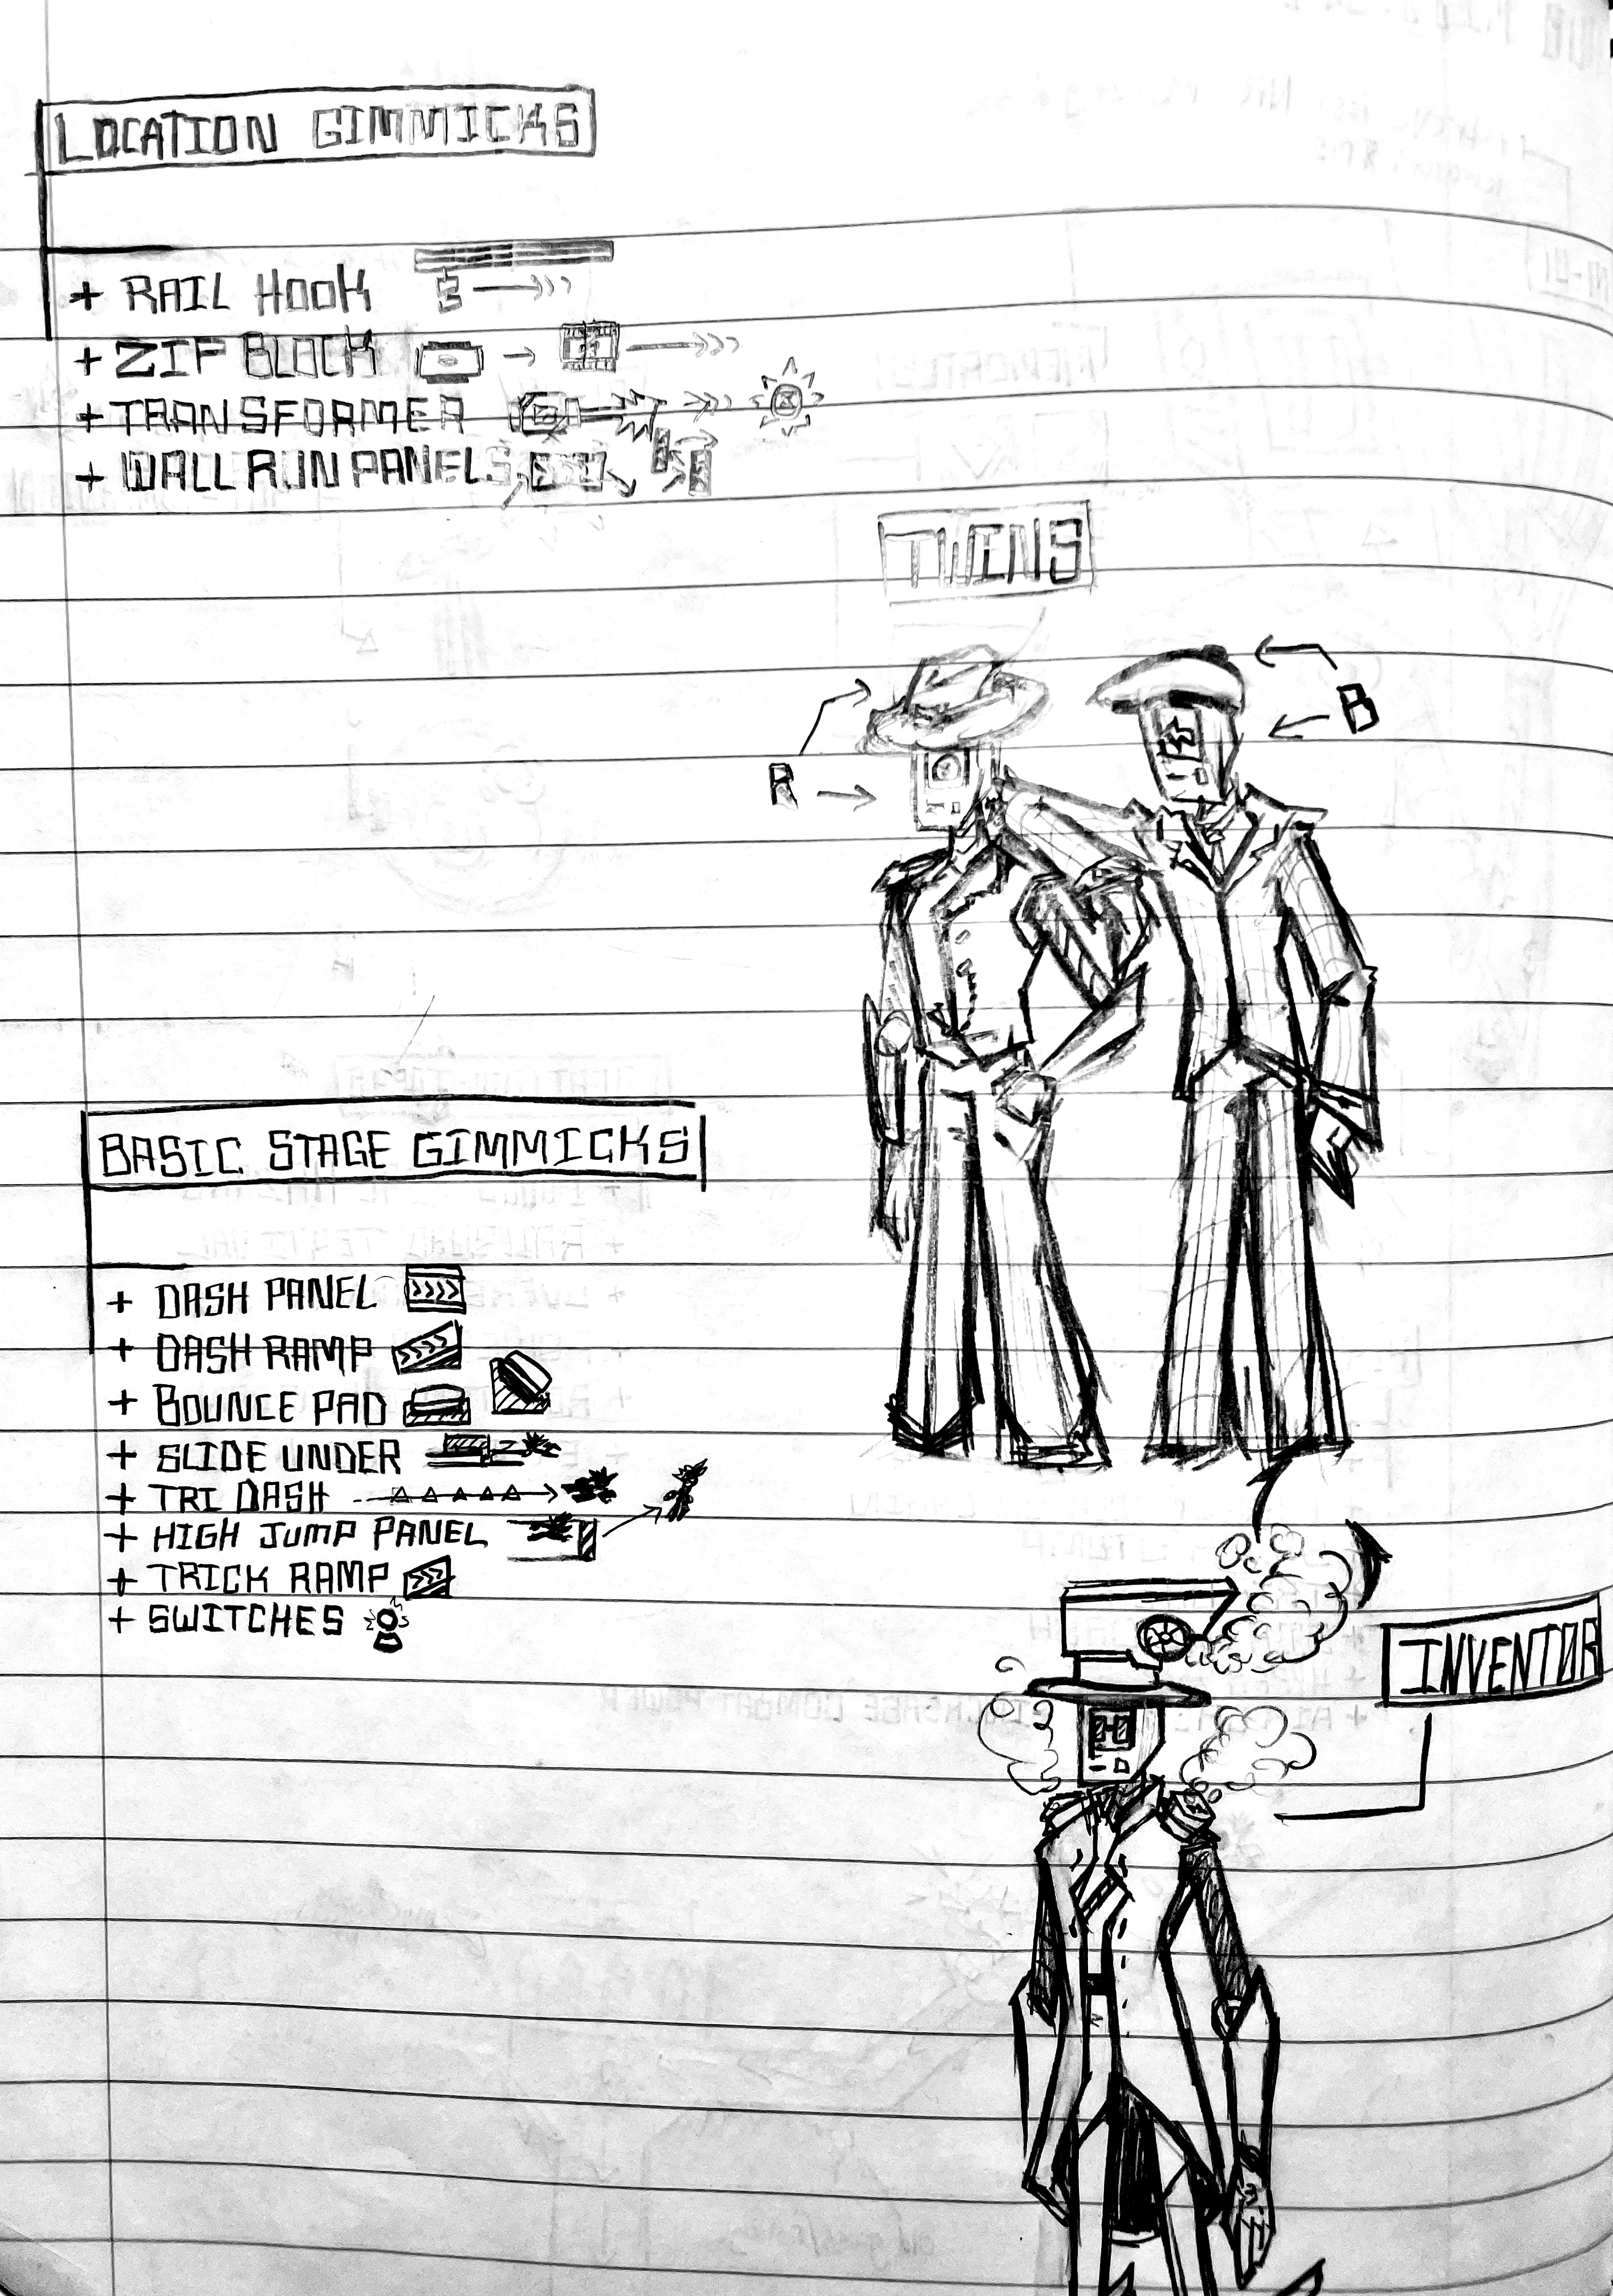 LOCATION GIMMICKS
+ RAIL HOOK
+ ZIP BLOCK
+ TRANSFORMER
+ WALL RUN PANELS
TWINS
B
R
BASIC STAGE GIMMICKS
+ DASH PANEL
+ DASH RAMP
+ BOUNCE PAD
+ SLIDE UNDER
+ TRI DASH
+ HIGH JUMP PANEL
+ TRICK RAMP
+ SWITCHES
INVENTOR